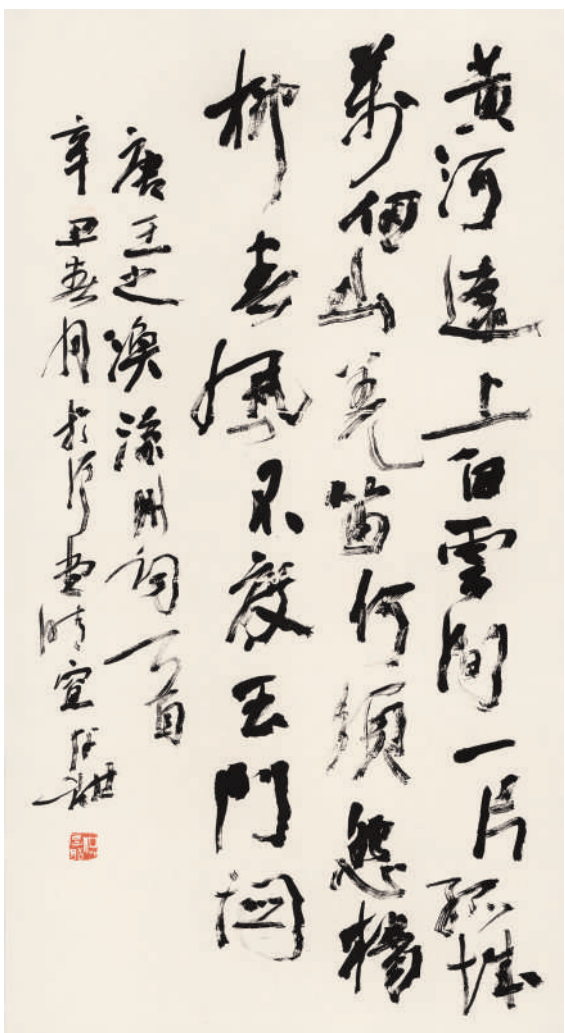 黄河遠上白雲間一片孤城
萬仞山羌笛何須怨楊
柳春風不度玉門関
唐王之渙涼州词一首
辛丑春月於淨堂晴宣